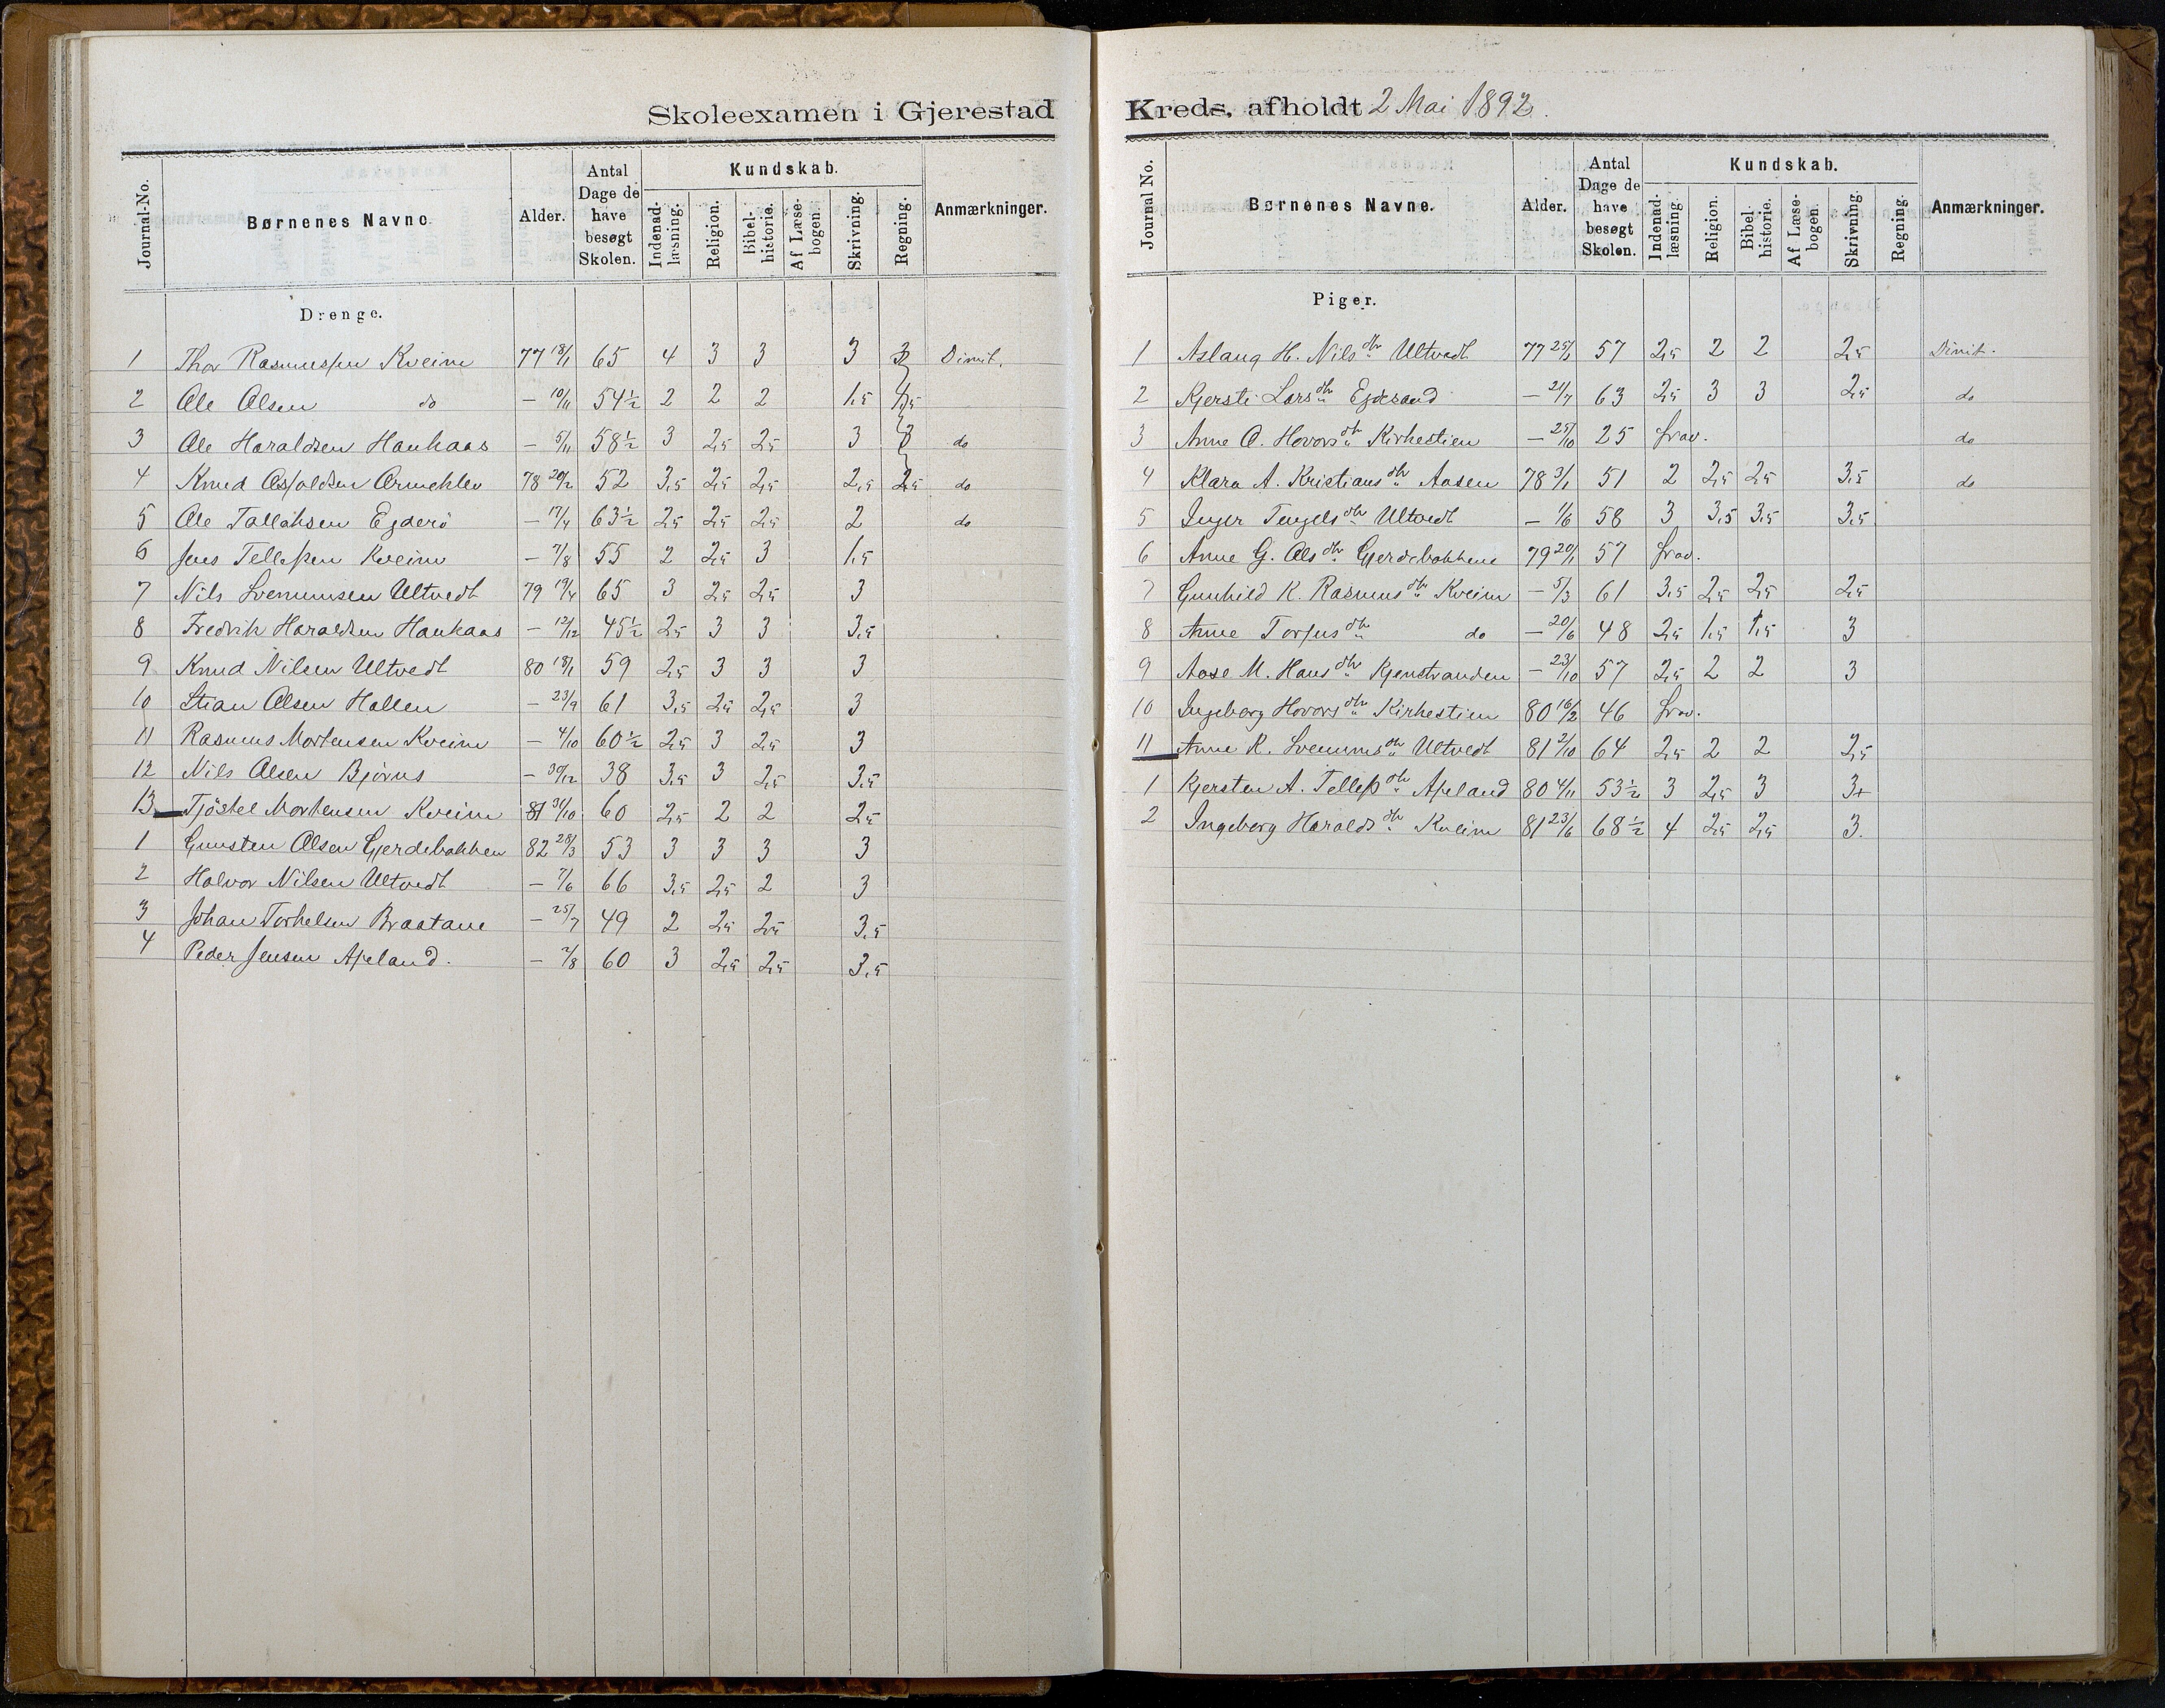 Skoleexamen i Gjerestad
Journal-No. Børnenes Navne. Alder. Antal Dage de have besøgt Skolen. Kundskab. Indenad-læsning. Religion. Bibel-historie. Af Læse-bogen. Skrivning. Regning. Anmærkninger.
Drenge.
1 Thor Rasmussen Kveim 77 18/1 65 4 3 3 3 3 Dimit.
2 Ole Olsen do — 10/11 54½ 2 2 2 1,5 1,5
3 Ole Haraldsen Haukaas — 5/11 58½ 3 2,5 2,5 3 3 do
4 Knud 78 20/2 52 3,5 2,5 2,5 2,5 2,5 do
5 Ole Tallaksen Egderö — 17/4 63½ 2,5 2,5 2,5 2 do
6 Jens Tellefsen Kveim — 7/8 55 2 2,5 3 1,5
7 Nils Svenumsen Ultvedt 79 65 3 2,5 2,5 3
8 Fredrik Haraldsen Haukaas — 12/12 45½ 2,5 3 3 3,5
9 Knud Nilsen Ultvedt 80 18/1 59 2,5 3 3 3
10 Stian Olsen Hallen — 23/9 61 3,5 2,5 2,5 3
11 Rasmus Mortensen Kveim — 4/10 60½ 2,5 3 2,5 3
12 Nils Olsen Bjørus — 30/12 38 3,5 3 2,5 3,5
13 Tjöstel Mortensen Kveim 81 31/10 60 2,5 2 2 2,5
1 Gunsten Olsen Gjerdebakken 82 28/3 53 3 3 3 3
2 Halvor Nilsen Ultvedt — 7/6 66 3,5 2,5 2 3
3 Johan Torkelsen Braatane — 25/7 49 2 2,5 2,5 3,5
4 Peder Jensen Apeland. — 2/8 60 3 2,5 2,5 3,5
Kreds, afholdt 2 Mai 1892.
Journal No. Børnenes Navne. Alder. Antal Dage de have besøgt Skolen. Kundskab. Indenad-læsning. Religion. Bibel-historie. Af Læse-bogen. Skrivning. Regning. Anmærkninger.
Piger.
1 Aslaug H. Nilsdtr Ultvedt 77 57 2,5 2 2 2,5 Dimit.
2 Kjersti Larsdtr Egdesand — 21/7 63 2,5 3 3 2,5 do
3 Anne O. Hovorsdtr Kirkestien — 25/10 25 frav. do
4 Klara A. Kristiansdtr Aasen 78 3/1 51 2 2,5 2,5 3,5 do
5 Inger Tengelsdtr Ultvedt — 1/6 58 3 3,5 3,5 3,5
6 Anne G. Olsdtr Gjerdebakkene 79 20/1 57 frav.
7 Gunhild K. Rasmusdtr Kveim — 5/3 61 3,5 2,5 2,5 2,5
8 Anne Torjusdtr do — 20/6 48 2,5 1,5 1,5 3
9 Aase M. Hansdtr Kjenstranden — 23/10 57 2,5 2 2 3
10 Ingeborg Hovorsdtr Kirkestien 80 16/2 46 frav.
11 Anne K. Svenumsdtr Ultvedt 81 2/10 64 2,5 2 2 2,5
1 Kjersten A. Tellefsdtr Apeland 80 4/11 53½ 3 2,5 3 3+
2 Ingeborg Haraldsdtr Kveim 81 23/6 68½ 4 2,5 2,5 3.